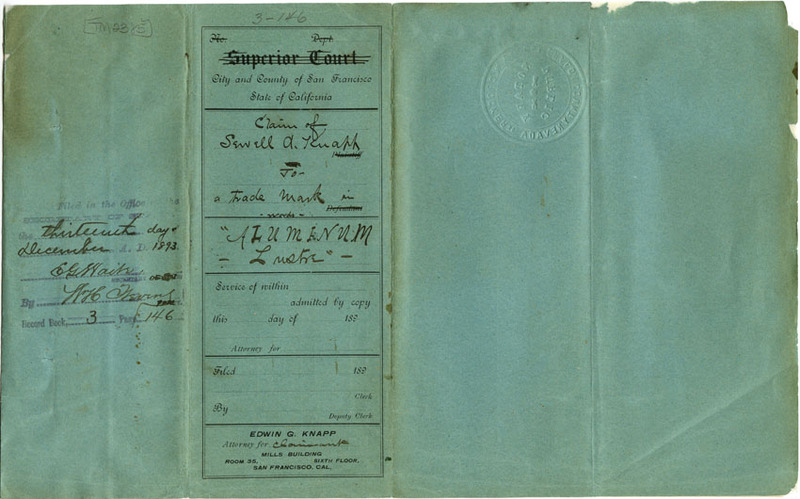 TM2385
3-146
No. Dept.
Superior Court
City and County of San Francisco
State of California
Claim of
Sewell A. Knapp
Plaintiff
To
a trade mark in
Defendant
words
"ALUMENUM
Lustre"
Service of within
admitted by copy
this day of 189
Attorney for
Filed 189
Clerk
By
Deputy Clerk
EDWIN G. KNAPP
Attorney for Claimant
MILLS BUILDING
ROOM 35, SIXTH FLOOR,
SAN FRANCISCO, CAL.
Filed in the Office
SECRETARY OF
the thirteenth day of
December A. D. 1893
E G Waite
By W H
Record Book, 3 Page 146